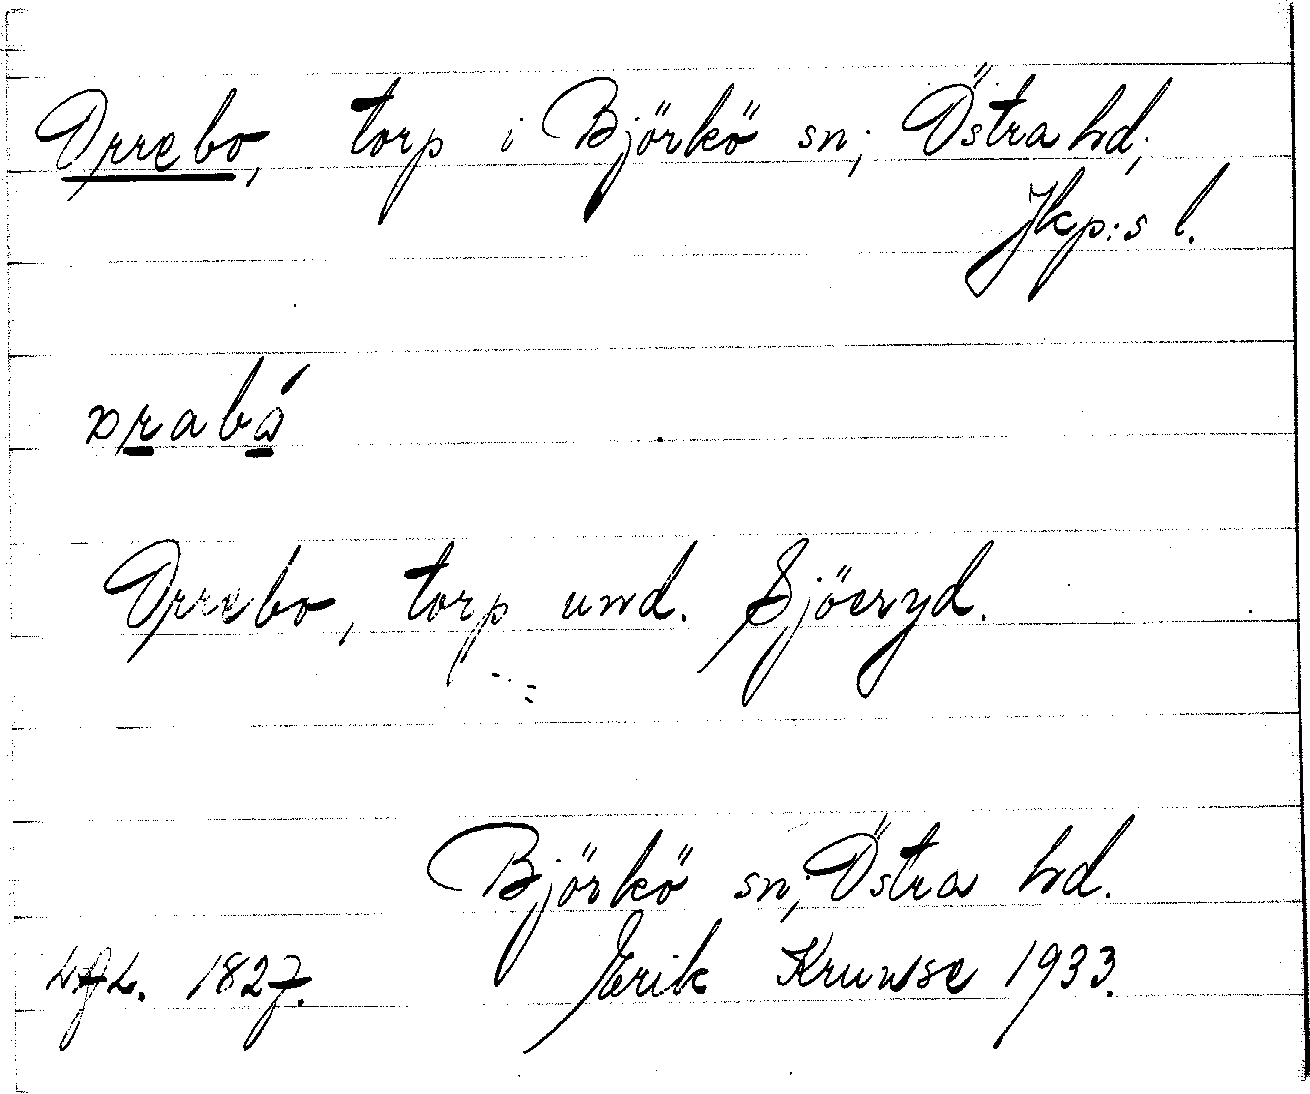 Orrebo, torp i Björkö sn, Östra hd,
Jkp:s l.
Orrebo, torp und. Sjöeryd.
Björkö sn, Östra hd.
1827. Erik Kruuse 1933.